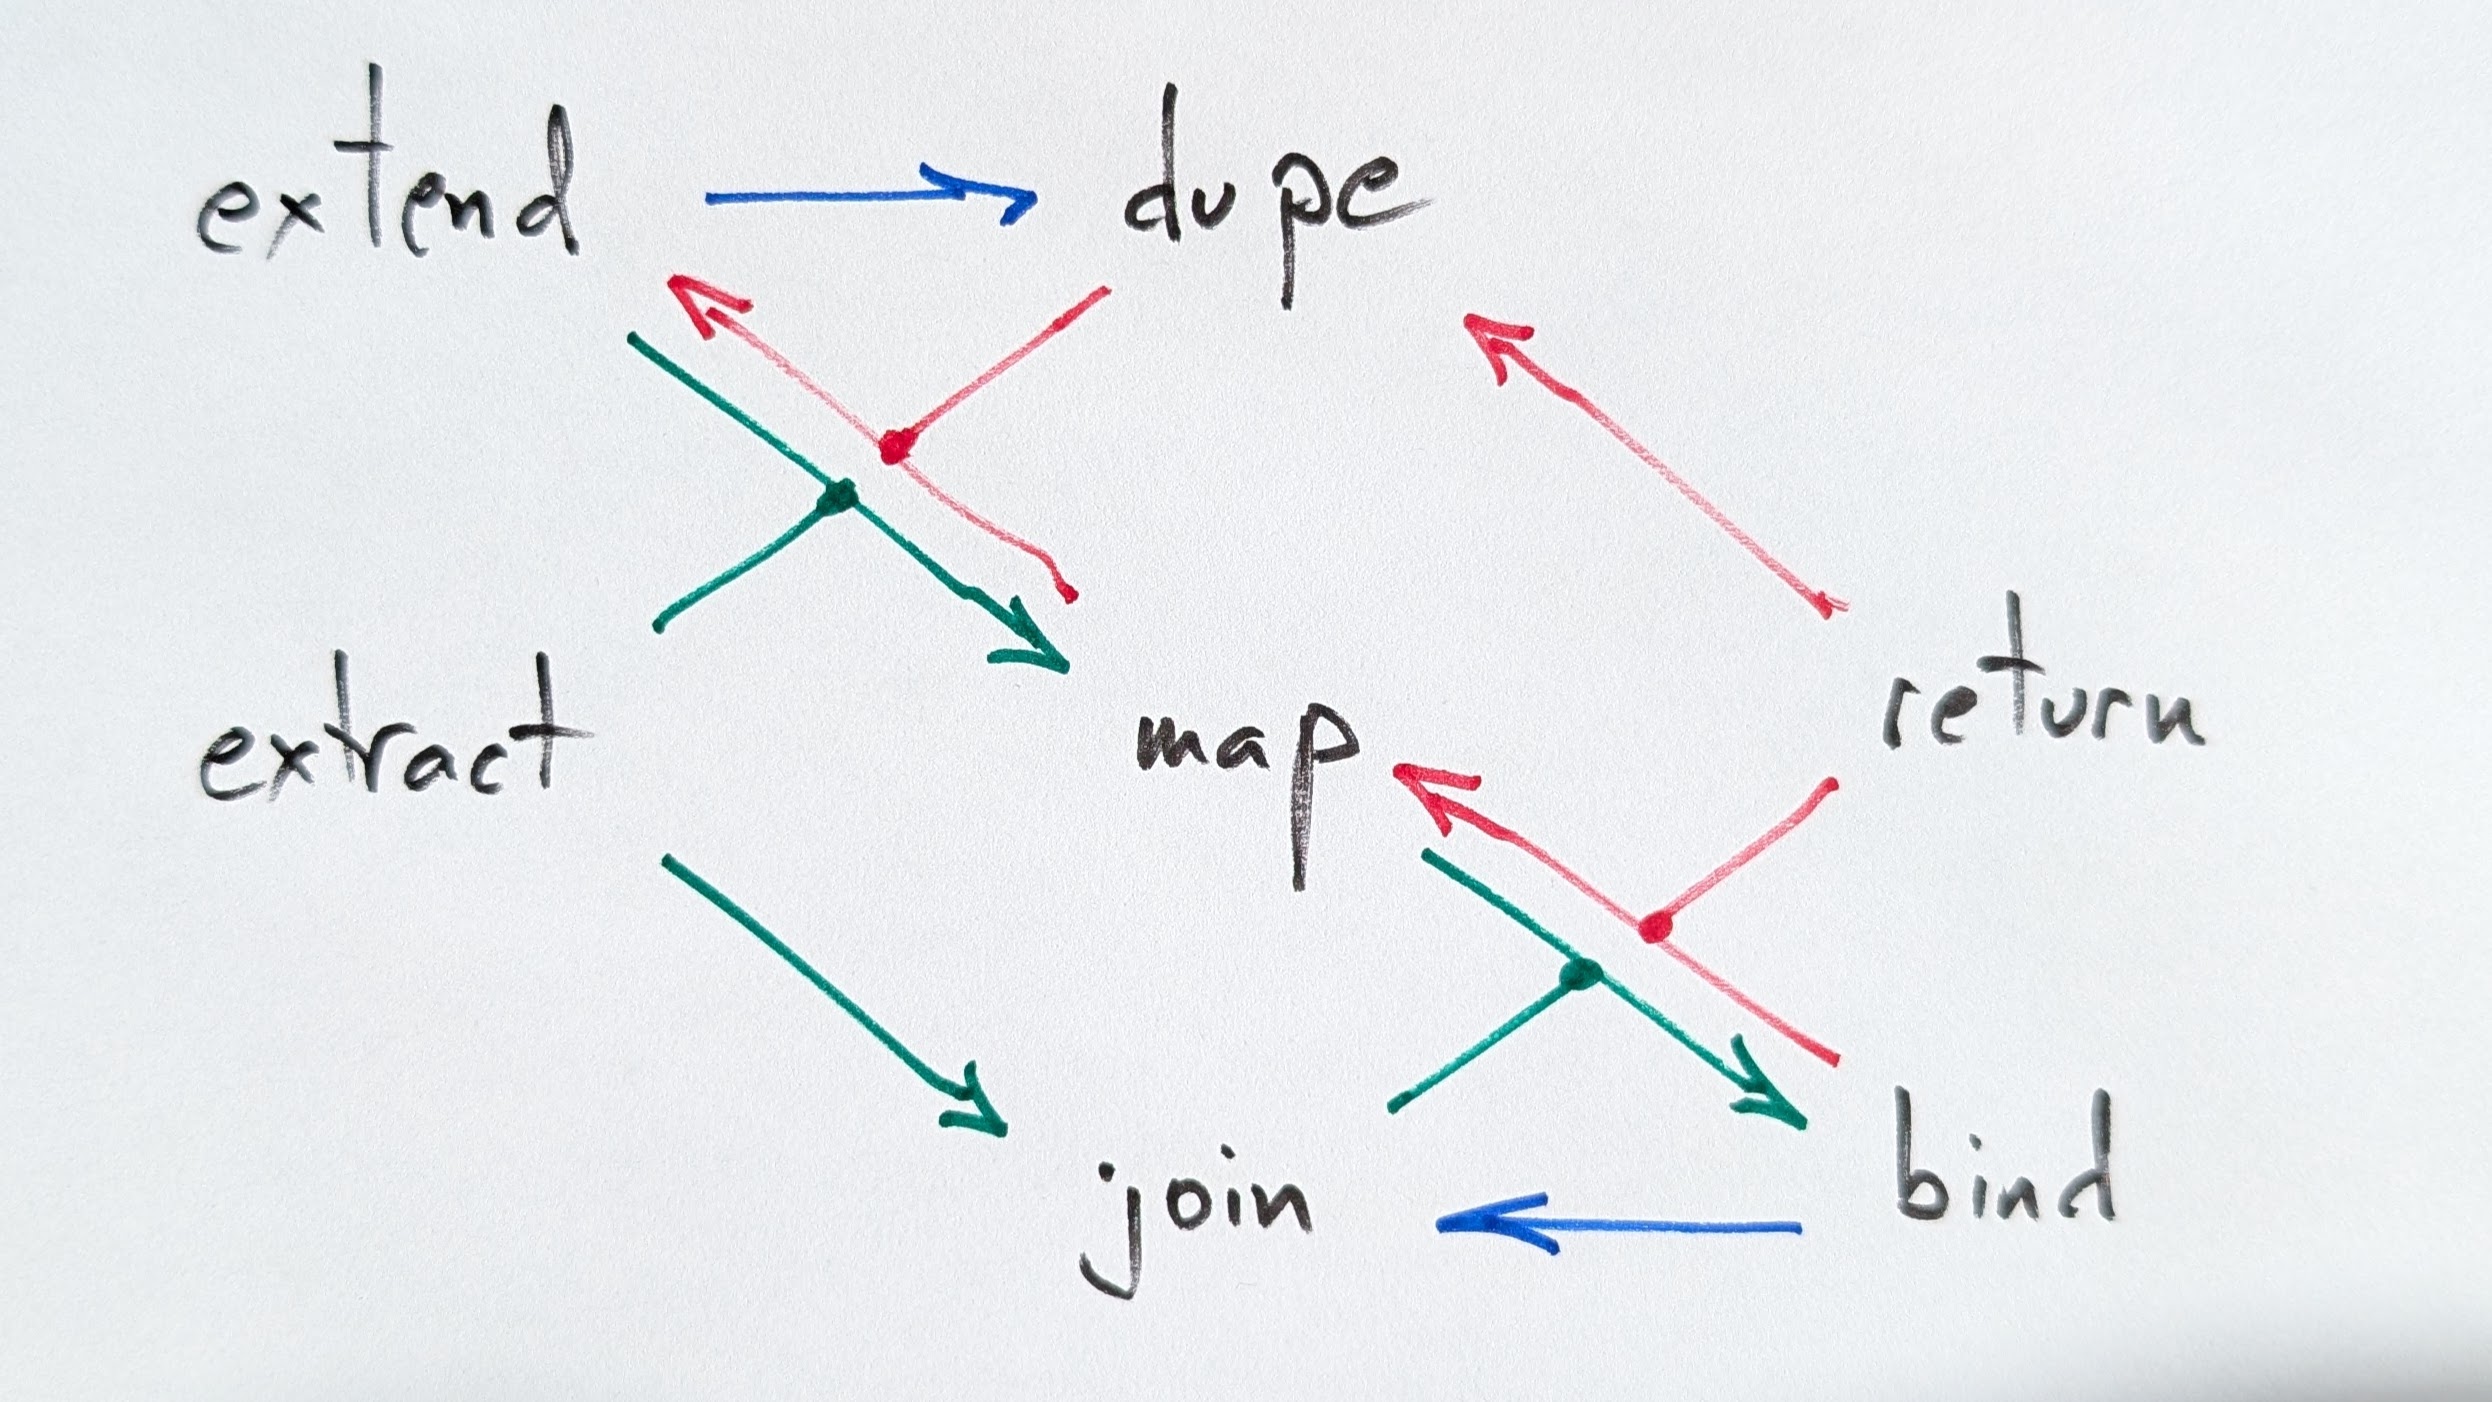 extend dupe
extract map return
join bind